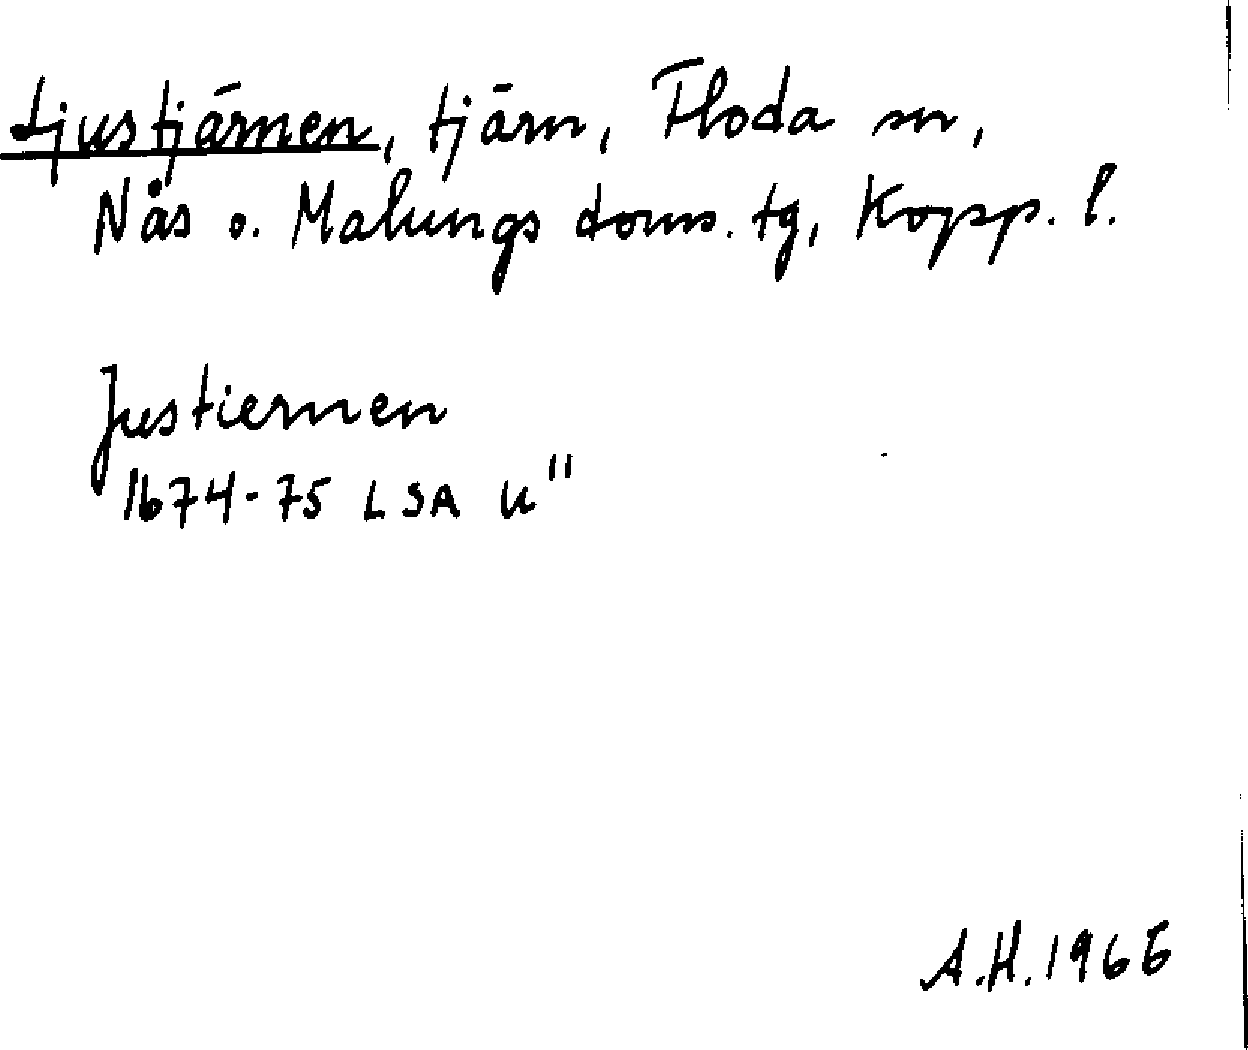 Ljustjärnen, tjärn, Floda sn,
Nås o. Malungs doms. tg, Kopp. l.
Justiernen
1674-75 LSA U"
A.H. 1966